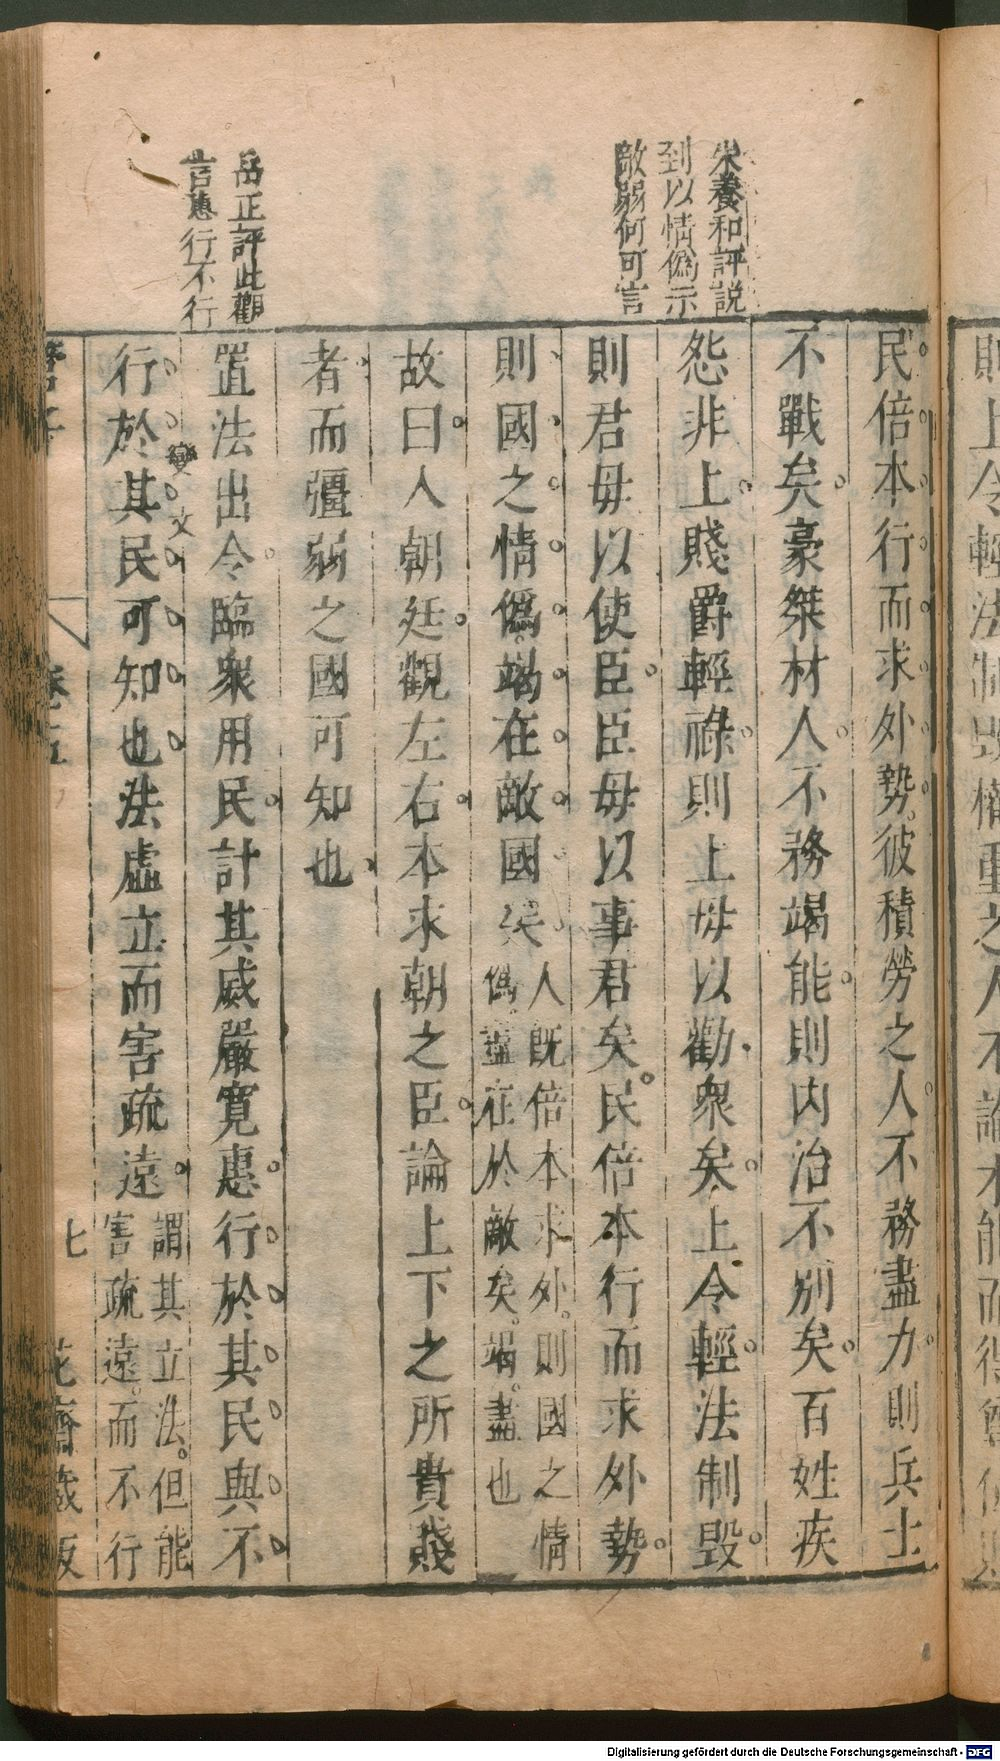 則上令輕法制毀權重之人不論才能而得尊位則
朱養和評説
到以情僞示
敵弱何可言
岳正評此觀
言惠行不行
民倍本行而求外勢彼積勞之人不務盡力則兵士
不戰矣豪桀材人不務竭能則内治不别矣百姓疾
怨非上賤爵輕祿則上毋以勸衆矣上令輕法制毁
則君毋以使臣臣毋以事君矣民倍本行而求外勢
則國之情僞竭在敵國矣
人既倍本求外則國之情
僞盡在於敵矣竭盡也
故曰人朝廷觀左右本求朝之臣論上下之所貴賤
者而彊弱之國可知也
置法出令臨衆用民計其威嚴寛惠行於其民與不
變文
行於其民可知也法虛立而害疏遠
謂其立法但能
害疏遠而不行
管子
卷五
七
花齋藏板
Digitalisierung gefördert durch die Deutsche Forschungsgemeinschaft - DFG